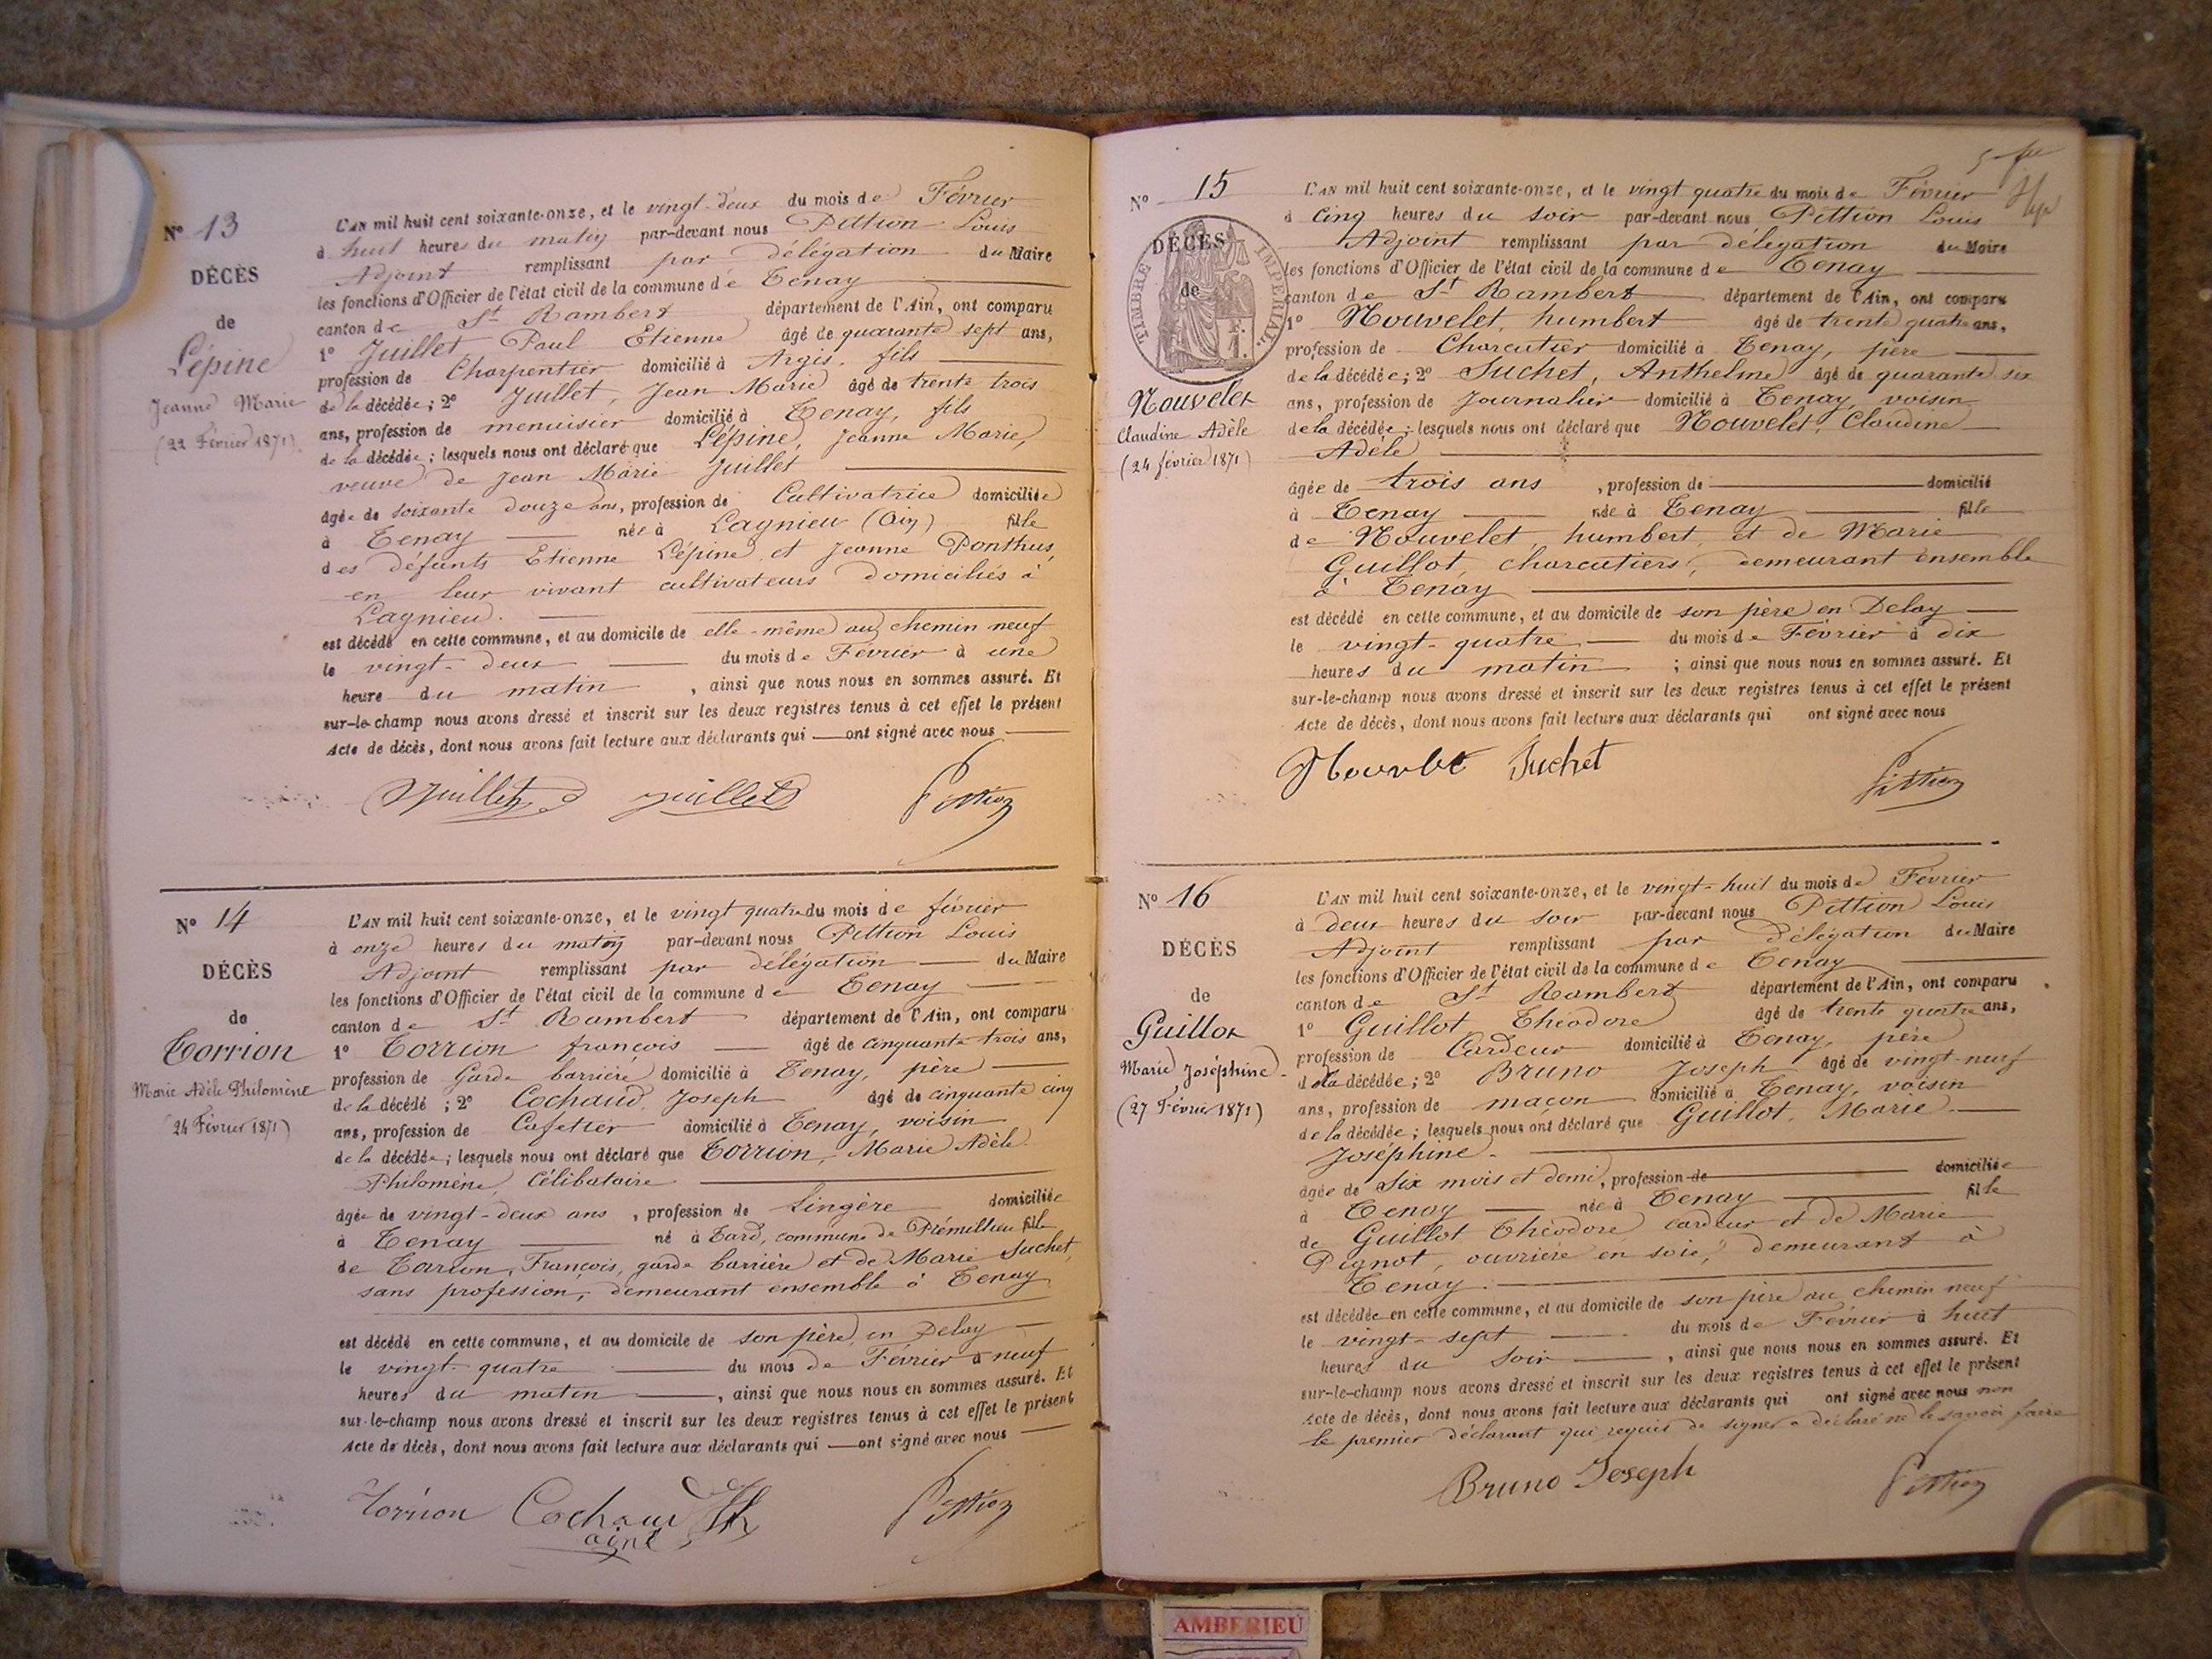 N° 13
DÉCÈS
de
Lépine
Jeanne Marie
(22 Février 1871)
L'AN mil huit cent soixante-onze, et le vingt-deux du mois de Février
à huit heures du matin par-devant nous Pittion Louis
Adjoint remplissant par délégation du Maire
les fonctions d'Officier de l'état civil de la commune de Tenay
canton de St Rambert département de l'Ain, ont comparu
1° Juillet Paul Etienne âgé de quarante sept ans,
profession de Charpentier domicilié à Argis, fils
de la décédée; 2° Juillet, Jean Marie âgé de trente trois
ans, profession de menuisier domicilié à Tenay, fils
de la décédée; lesquels nous ont déclaré que Lépine, Jeanne Marie,
veuve de Jean Marie Juillet
âgée de soixante douze ans, profession de Cultivatrice domiciliée
à Tenay née à Lagnieu (Ain) fille
des défunts Etienne Lépine et Jeanne Ponthus,
en leur vivant cultivateurs domiciliés à
Lagnieu.
est décédé en cette commune, et au domicile de elle-même au chemin neuf
le vingt-deux du mois de Février à une
heure du matin, ainsi que nous nous en sommes assuré. Et
sur-le-champ nous avons dressé et inscrit sur les deux registres tenus à cet effet le présent
Acte de décès, dont nous avons fait lecture aux déclarants qui ont signé avec nous
Juillet juillet Pittion
N° 14
DÉCÈS
de
Torrion
Marie Adèle Philomène
(24 Février 1871)
L'AN mil huit cent soixante-onze, et le vingt quatre du mois de février
à onze heures du matin par-devant nous Pittion Louis
Adjoint remplissant par délégation du Maire
les fonctions d'Officier de l'état civil de la commune de Tenay
canton de St Rambert département de l'Ain, ont comparu
1° Torrion françois âgé de cinquante trois ans,
profession de Garde barrière domicilié à Tenay, père
de la décédé; 2° Cochaud, Joseph âgé de cinquante cinq
ans, profession de Cafetier domicilié à Tenay, voisin
de la décédée; lesquels nous ont déclaré que Torrion, Marie Adèle
Philomène, Célibataire
âgée de vingt-deux ans, profession de Lingère domiciliée
à Tenay né à Tard, commune de Prémillieu fille
de Tarion, François, garde barrière et de Marie Suchet,
sans profession, demeurant ensemble à Tenay
est décédé en cette commune, et au domicile de son père, en Delay
le vingt-quatre du mois de Février à neuf
heures du matin, ainsi que nous nous en sommes assuré. Et
sur-le-champ nous avons dressé et inscrit sur les deux registres tenus à cet effet le présent
Acte de décès, dont nous avons fait lecture aux déclarants qui ont signé avec nous
Torrion Cochaud Pittion
ainé
N° 15
DÉCÈS
de
TIMBRE IMPÉRIAL
Nouvelet
Claudine Adèle
(24 février 1871)
L'AN mil huit cent soixante-onze, et le vingt quatre du mois de Février
à Cinq heures du soir par-devant nous Pittion Louis
Adjoint remplissant par délégation du Maire
les fonctions d'Officier de l'état civil de la commune de Tenay
canton de St Rambert département de l'Ain, ont comparu
1° Nouvelet, humbert âgé de trente quatre ans,
profession de Charcutier domicilié à Tenay, père
de la décédée; 2° Suchet, Anthelme âgé de quarante six
ans, profession de Journalier domicilié à Tenay, voisin
de la décédée; lesquels nous ont déclaré que Nouvelet, Claudine
Adèle
âgée de trois ans, profession de domicilié
à Tenay née à Tenay fille
de Nouvelet, humbert, et de Marie
Guillot, charcutiers, demeurant ensemble
à Tenay
est décédé en cette commune, et au domicile de son père en Delay
le vingt-quatre du mois de Février à dix
heures du matin; ainsi que nous nous en sommes assuré. Et
sur-le-champ nous avons dressé et inscrit sur les deux registres tenus à cet effet le présent
Acte de décès, dont nous avons fait lecture aux déclarants qui ont signé avec nous
Suchet Pittion
N° 16
DÉCÈS
de
Guillot
Marie Joséphine
(27 Février 1871)
L'AN mil huit cent soixante-onze, et le vingt-huit du mois de Février
à deux heures du soir par-devant nous Pittion Louis
Adjoint remplissant par délégation du Maire
les fonctions d'Officier de l'état civil de la commune de Tenay
canton de St Rambert département de l'Ain, ont comparu
1° Guillot Théodore âgé de trente quatre ans,
profession de Cardeur domicilié à Tenay, père
de la décédée; 2° Bruno Joseph âgé de vingt-neuf
ans, profession de maçon domicilié à Tenay, voisin
de la décédée; lesquels nous ont déclaré que Guillot, Marie
Joséphine
âgée de Six mois et demi, profession de domiciliée
à Tenay née à Tenay fille
de Guillot Théodore, cardeur et de Marie
Pignot, ouvrière en soie, demeurant à
Tenay
est décédée en cette commune, et au domicile de son père au chemin neuf
le vingt-sept du mois de Février à huit
heures du soir, ainsi que nous nous en sommes assuré. Et
sur-le-champ nous avons dressé et inscrit sur les deux registres tenus à cet effet le présent
Acte de décès, dont nous avons fait lecture aux déclarants qui ont signé avec nous non
le premier déclarant qui requis de signer a déclaré ne le savoir faire
Bruno Joseph Pittion
AMBERIEU